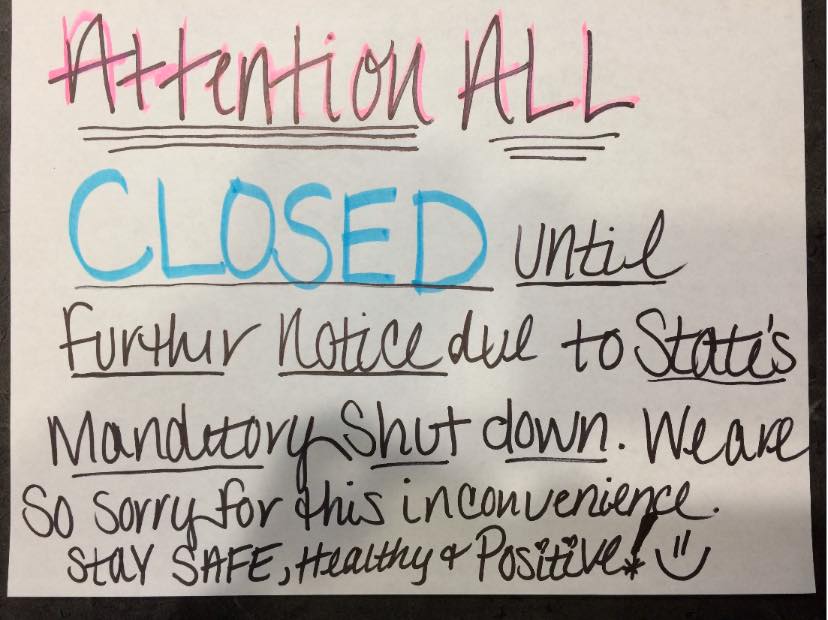 Attention ALL
CLOSED until
further notice due to State's
Mandatory Shut down. We are
So sorry for this inconvenience.
Stay SAFE, Healthy & Positive! :)